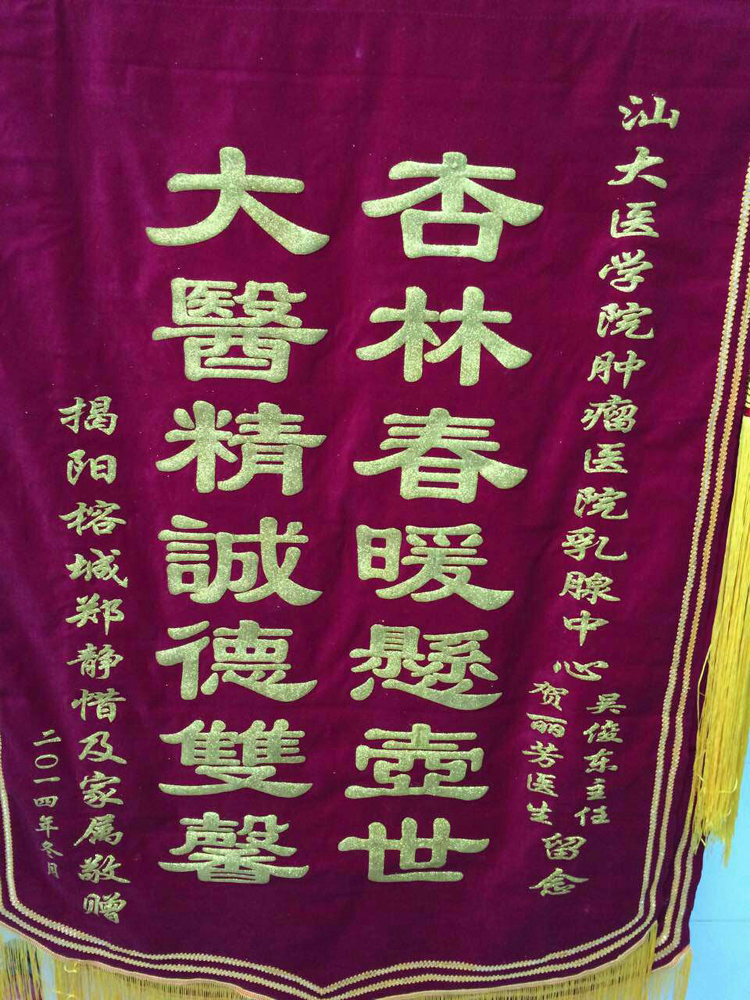 汕大医学院肿瘤医院乳腺中心
吴俊东主任
贺丽芳医生
留念
杏林春暖懸壺世
大醫精誠德雙馨
揭阳榕城郑静惜及家属敬赠
二〇一四年冬月